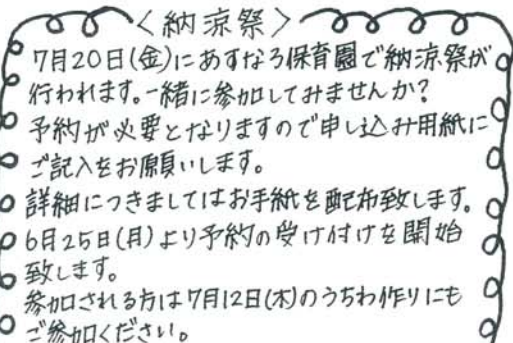 〈納涼祭〉
7月20日(金)にあすなろ保育園で納涼祭が
行われます。一緒に参加してみませんか?
予約が必要となりますので申し込み用紙に
ご記入をお願いします。
詳細につきましてはお手紙を配布致します。
6月25日(月)より予約の受け付けを開始
致します。
参加される方は7月12日(木)のうちわ作りにも
ご参加ください。